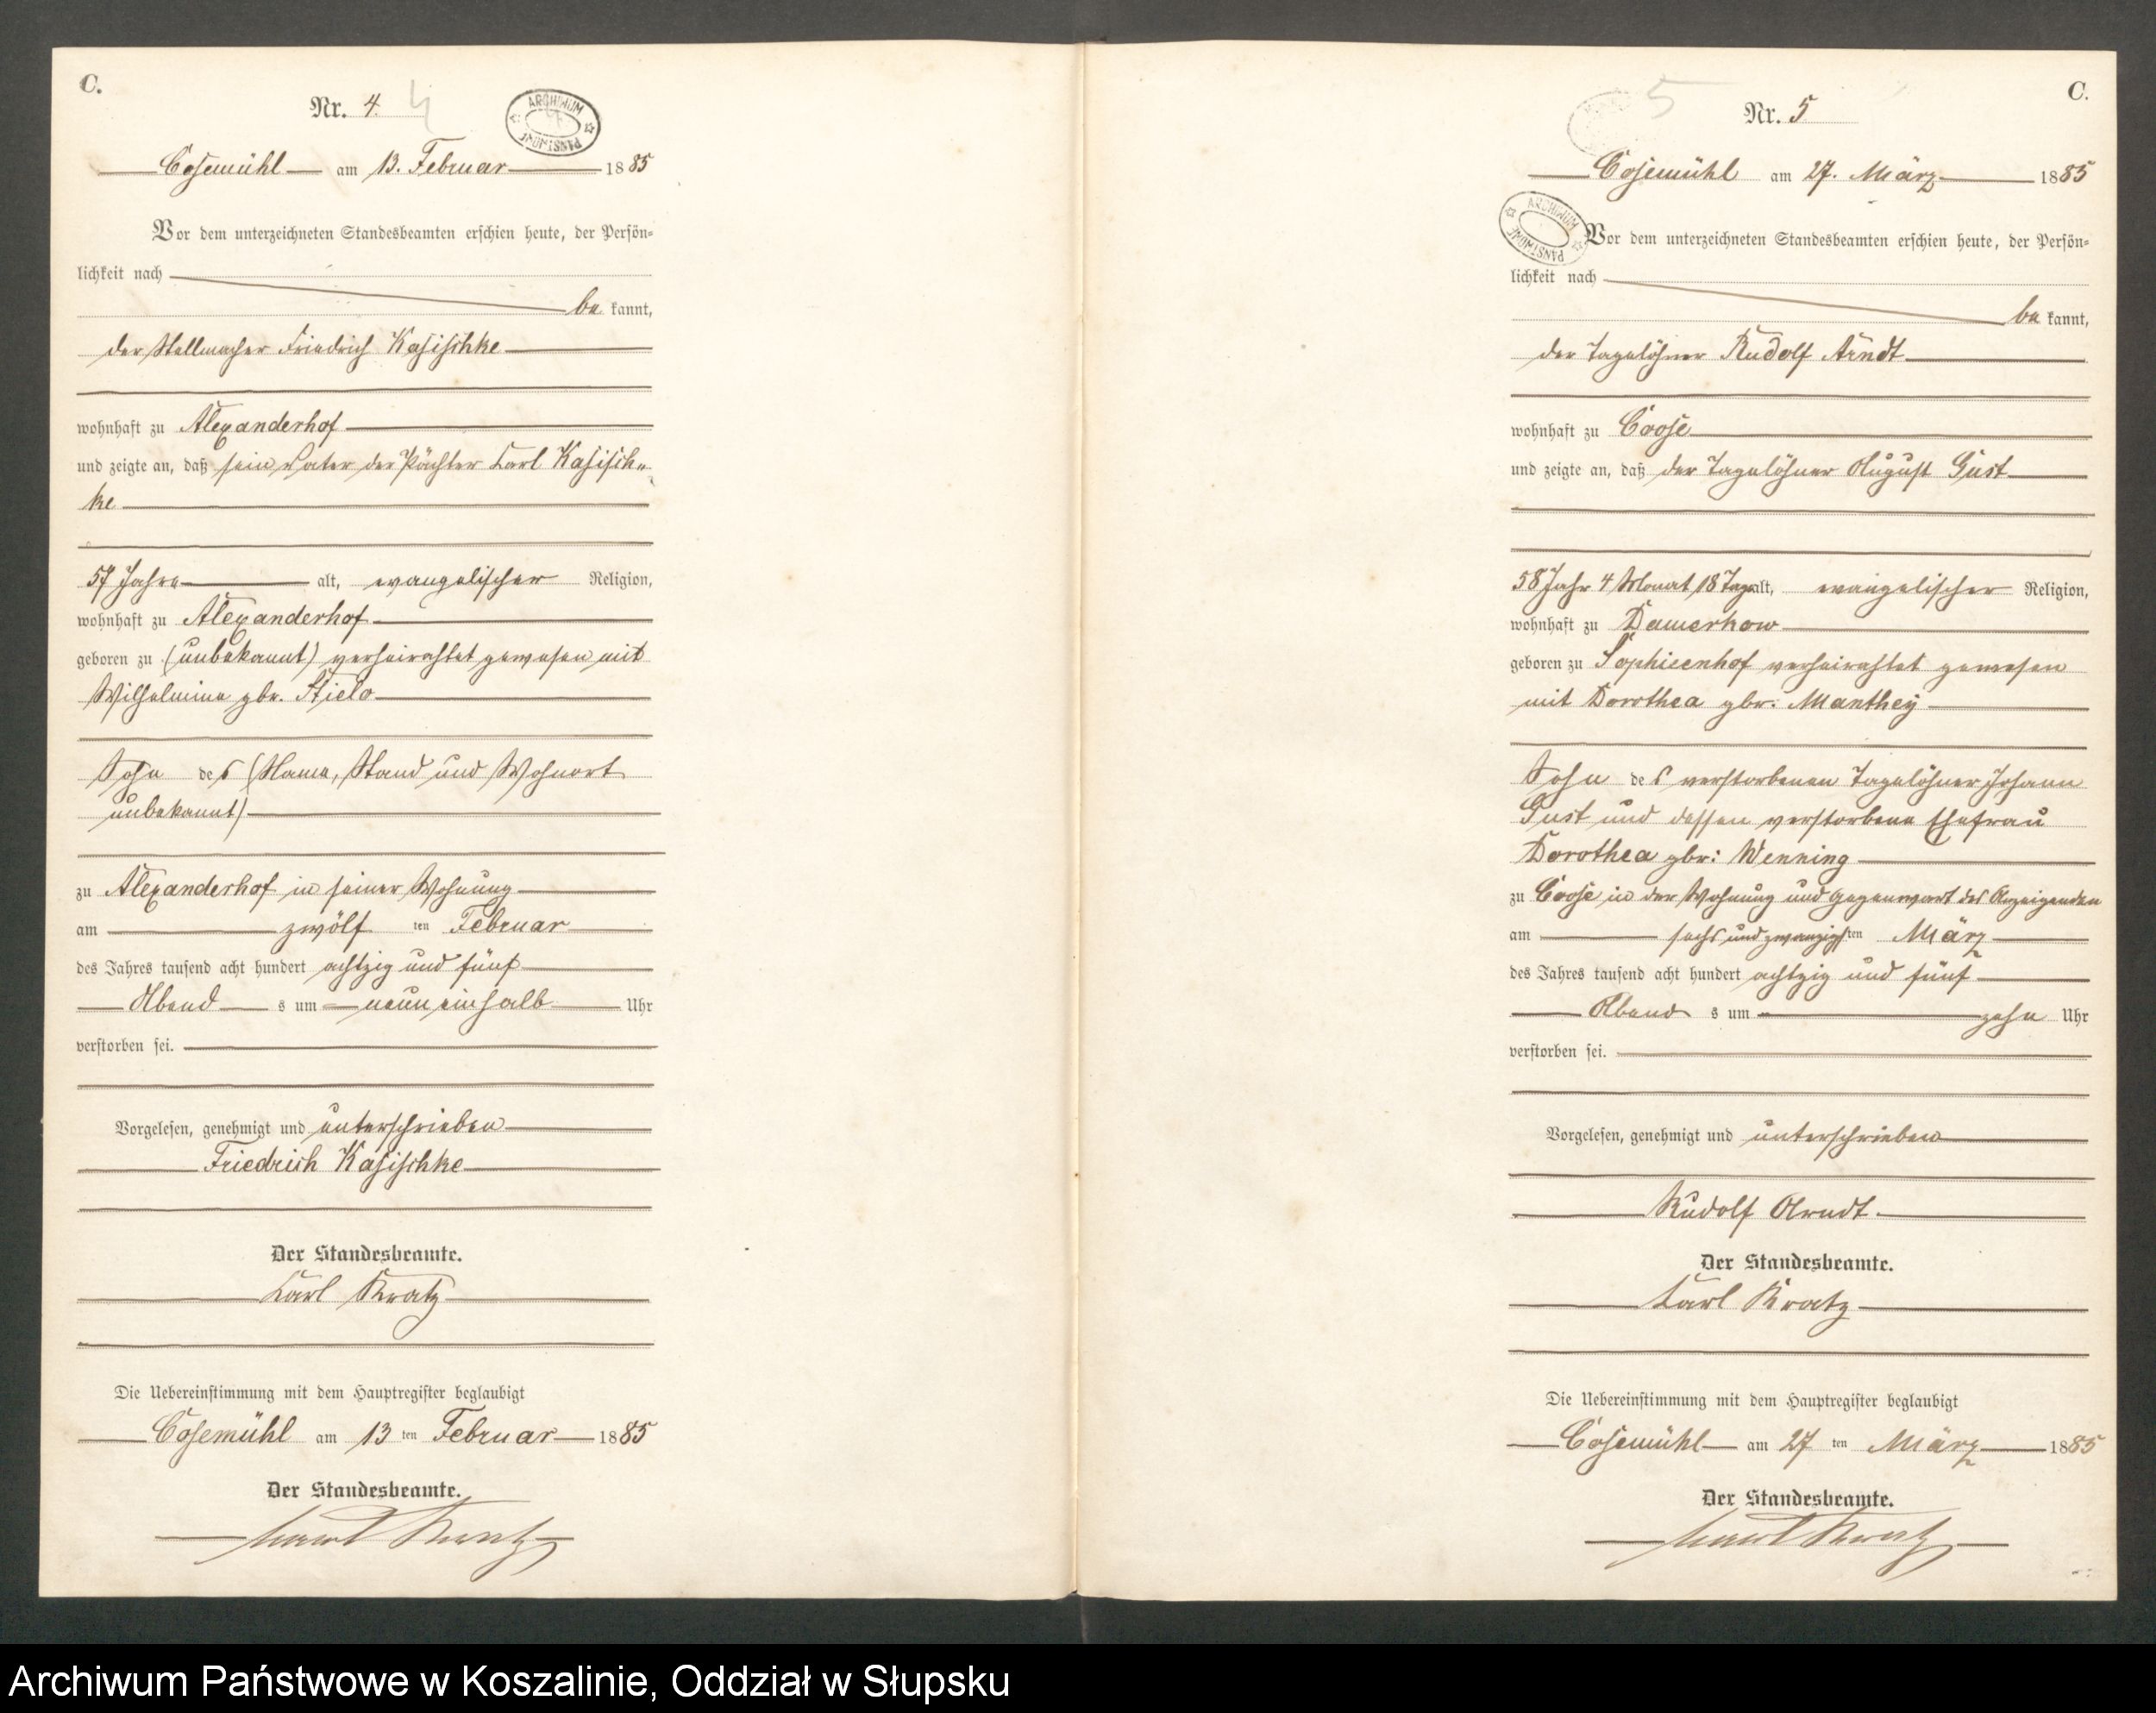 C.
Nr. 4. 4
ARCHIWUM PAŃSTWOWE
Cosemühl am 13. Februar 1885
Vor dem unterzeichneten Standesbeamten erschien heute, der Persön-
lichkeit nach
be kannt,
der Stellmacher Friedrich Kasischke
wohnhaft zu Alexanderhof
und zeigte an, daß sein Vater der Pächter Carl Kasisch-
ke
57 Jahre alt, evangelischer Religion,
wohnhaft zu Alexanderhof
geboren zu (unbekannt) verheirathet gewesen mit
Wilhelmine gbr. Stielo
Sohn des (Name, Stand und Wohnort
unbekannt)
zu Alexanderhof in seiner Wohnung
am zwölf ten Februar
des Jahres tausend acht hundert achtzig und fünf
Abend s um neun einhalb Uhr
verstorben sei.
Vorgelesen, genehmigt und unterschrieben
Friedrich Kasischke
Der Standesbeamte.
Carl Kratz
Die Uebereinstimmung mit dem Hauptregister beglaubigt
Cosemühl am 13 ten Februar 1885
Der Standesbeamte.
Carl Kratz
C.
5
Nr. 5
Cosemühl am 27. März 1885
ARCHIWUM PAŃSTWOWE
Vor dem unterzeichneten Standesbeamten erschien heute, der Persön-
lichkeit nach
be kannt,
der Tagelöhner Rudolf Arndt
wohnhaft zu Coose
und zeigte an, daß der Tagelöhner August Gust
58 Jahr 4 Monat 18 Tage alt, evangelischer Religion,
wohnhaft zu Damerkow
geboren zu Sophieenhof verheirathet gewesen
mit Dorothea gbr: Manthey
Sohn des verstorbenen Tagelöhner Johann
Gust und dessen verstorbene Ehefrau
Dorothea gbr: Wenning
zu Coose in der Wohnung und Gegenwart des Anzeigenden
am sechs und zwanzigsten März
des Jahres tausend acht hundert achtzig und fünf
Abend s um zehn Uhr
verstorben sei.
Vorgelesen, genehmigt und unterschrieben
Rudolf Arndt.
Der Standesbeamte.
Carl Kratz
Die Uebereinstimmung mit dem Hauptregister beglaubigt
Cosemühl am 27 ten März 1885
Der Standesbeamte.
Carl Kratz
Archiwum Państwowe w Koszalinie, Oddział w Słupsku